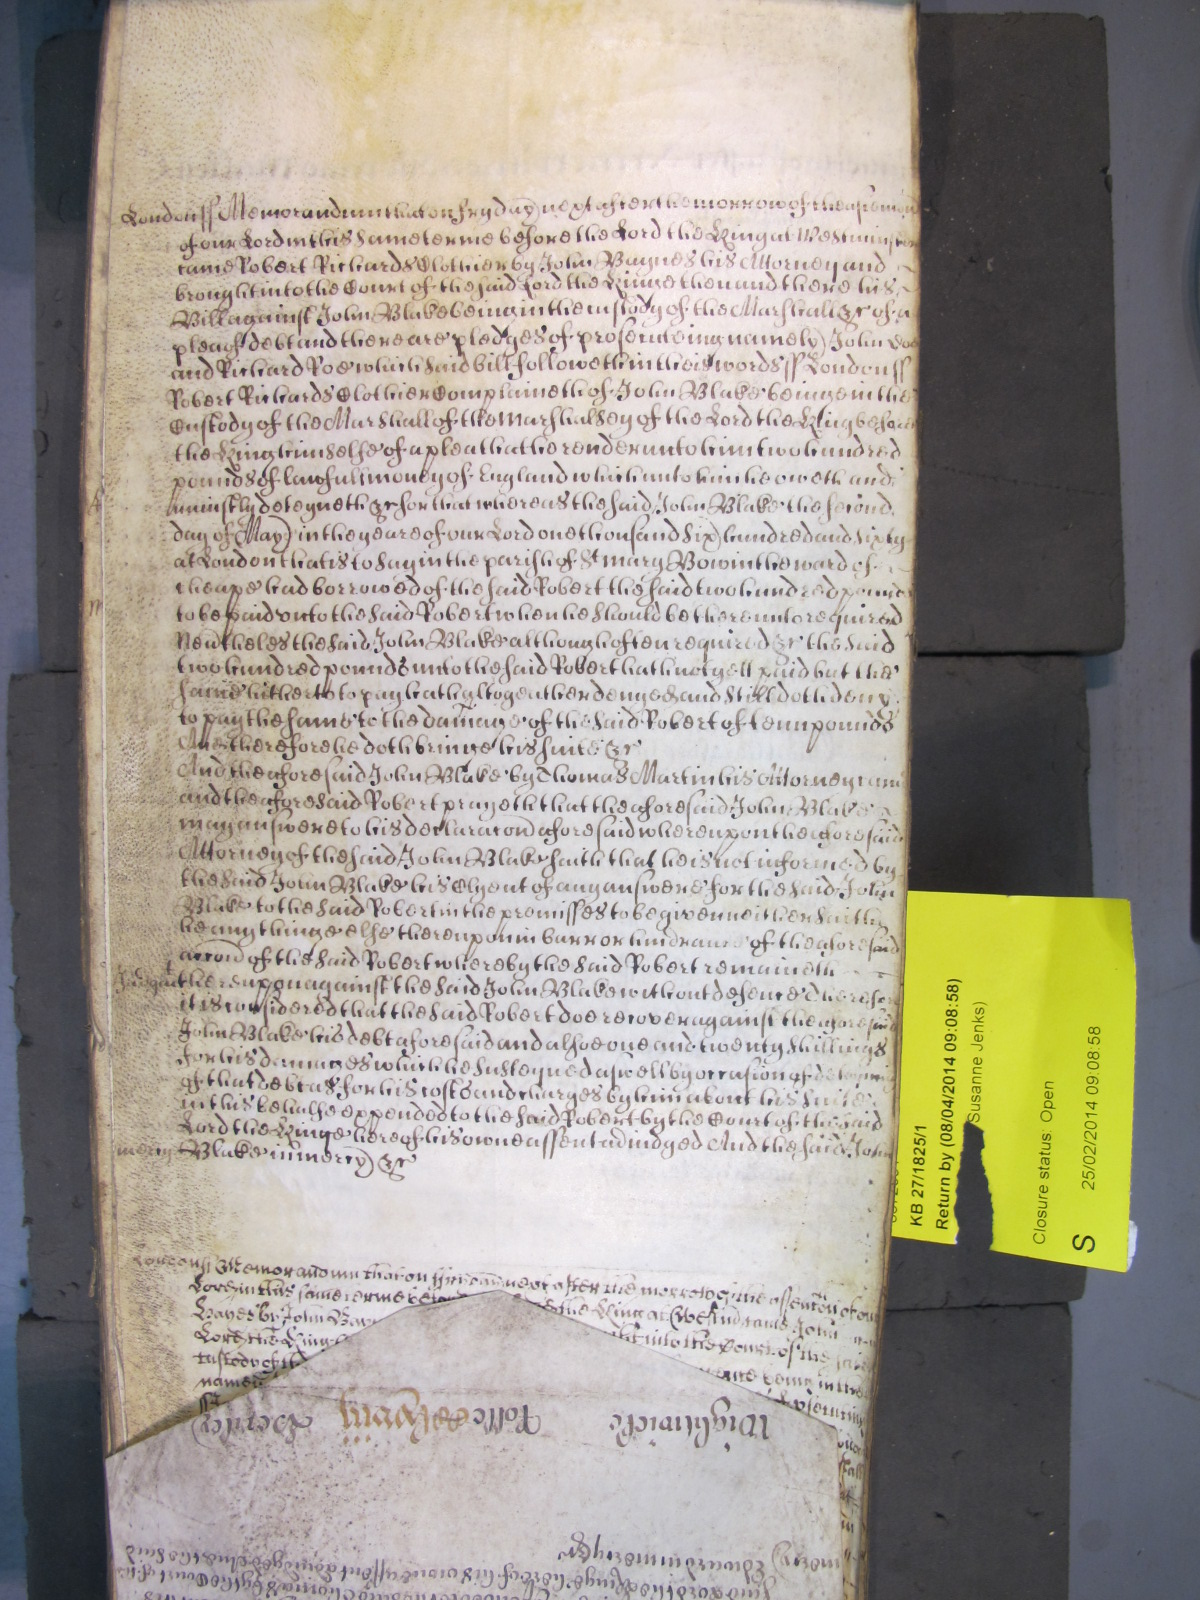 London ss Memorandum that on Fryday next after the morrow of the Ascencion
of our Lord in this same terme before the Lord the King at Westminster
came Robert Richards Clothier by John Baynes his Attorney and
brought into the Court of the said Lord the Kinge then and there his
Bill against John Blake being in the custody of the Marshall &c of a
plea of debt and there are pledges of prosecuteing namely John Doe
and Richard Roe which said bill followeth in theis words ss London ss
Robert Richards Clothier Complaineth of John Blake beinge in the
Custody of the Marshall of the Marshalsey of the Lord the King before
the King himselfe of a plea that he render unto him two hundred
pounds of lawfull money of England which unto him he oweth and
uniustly deteyneth &c for that whereas the said John Blake the second
day of May in the yeare of our Lord one thousand six hundred and sixty
at London that is to say in the parish of St Mary Bow in the ward of
Cheape had borrowed of the said Robert the said two hundred pounds
to be paid unto the said Robert when he should be thereunto required
Neverthelesthe said John Blake although often required &c the said
two hundred pounds unto the said Robert hath not yett paid but the
same hitherto to pay hath altogeather denyed and still doth deny
to pay the same to the damage of the said Robert of tenn pounds
And therefore he doth bringe his suite &c
And the aforesaid John Blake by Thomas Martin his Attorney came
and the aforesaid Robert prayeth that the aforesaid John Blake
may answere to his declaracon aforesaid whereupon the aforesaid
Attorney of the said John Blake saith that he is not informed by
the said John Blake his Clyent of any answere for the said John
Blake to the said Robert in the premisses to be given neither saith
he any thinge else thereupon in barr or hindrance of the aforesaid
accon of the said Robert whereby the said Robert remaineth
thereupon against the said John Blake without defence Therefore
it is considered that the said Robert doe recover against the aforesaid
John Blake his debt aforesaid and alsoe one and twenty shillings
for his damages which he susteyned aswell by occasion of deteyning
of that debt as for his costs and charges by him about his suite
in this behalfe expended to the said Robert by the Court of the said
Lord the Kinge here of his owne assent adiudged And the said John
mercy Blake in mercy &c
London ss Memorandum that on Fryday next after the morrow of the Ascencon of our
Lord in this same terme before the King at Westm came John
Hayes by John
Lord the King into the Court of the said
Custody of the being in the
named
Wightwicke
Rolle
mercy Edward in mercy &c
KB 27/1825/1
Return by (08/04/2014 09:08:58)
Susanne Jenks)
Closure status: Open
S
25/02/2014 09:08:58